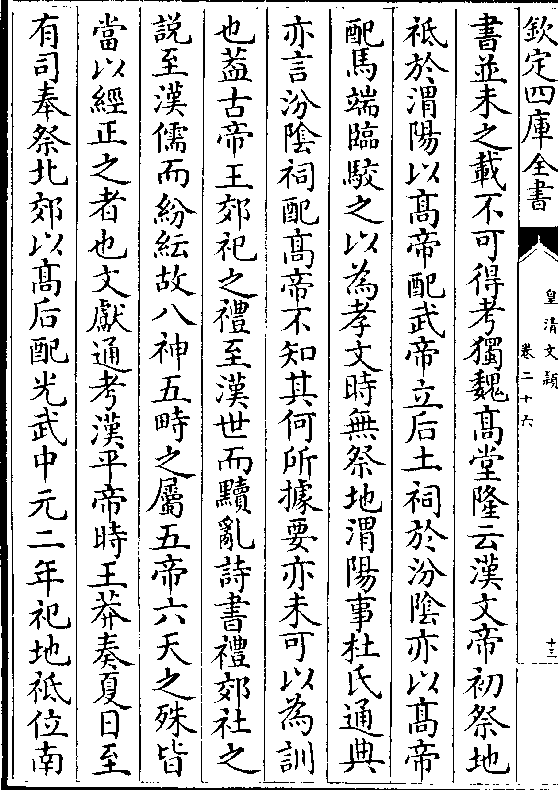 欽定四庫全書
皇清文頴
卷二十六
十三
書並未之載不可得考獨魏髙堂隆云漢文帝初祭地
祗於渭陽以髙帝配武帝立后土祠於汾隂亦以髙帝
配馬端臨駁之以為孝文時無祭地渭陽事杜氏通典
亦言汾隂祠配髙帝不知其何所據要亦未可以為訓
也葢古帝王郊祀之禮至漢世而黷亂詩書禮郊社之
説至漢儒而紛紜故八神五畤之屬五帝六天之殊皆
當以經正之者也文獻通考漢平帝時王莽奏夏日至
有司奉祭北郊以髙后配光武中元二年祀地祗位南